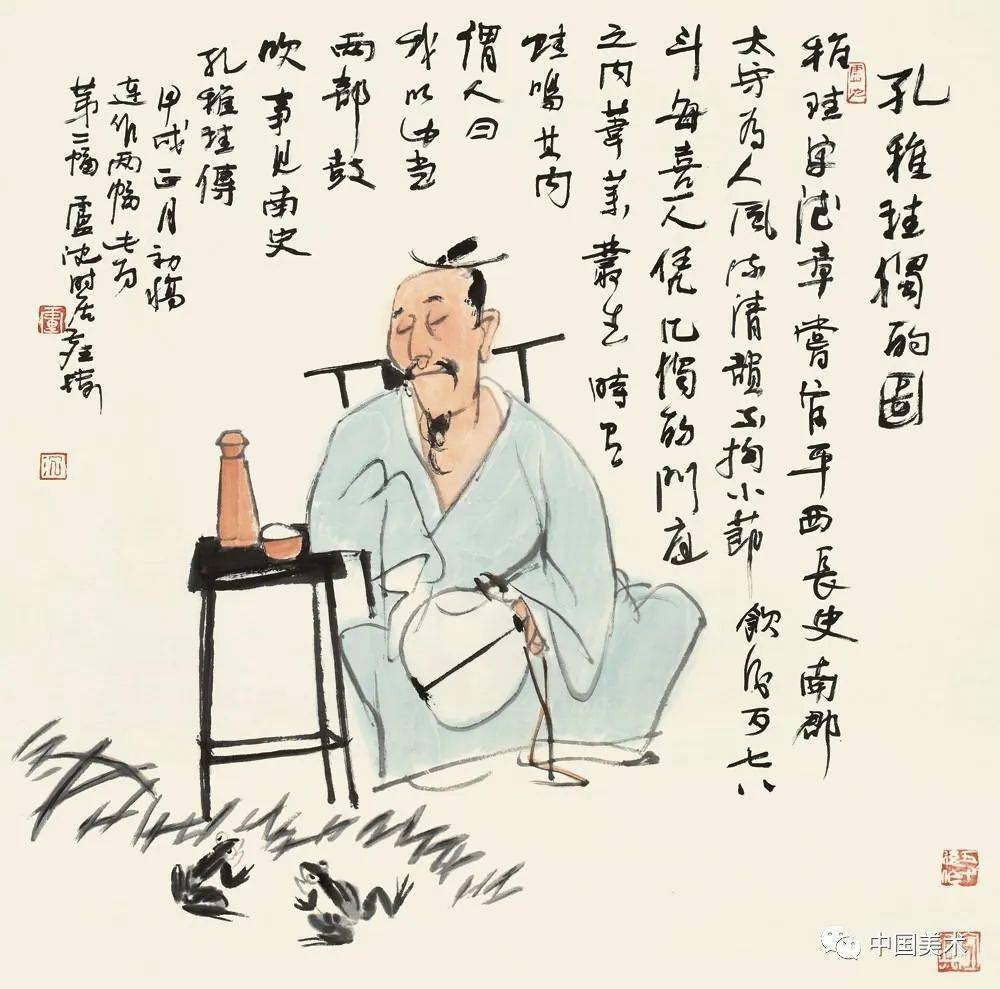 孔稚珪獨酌圖
稚珪字德章嘗官平西長史南郡
太守为人風流清韻不拘小節飲酒可七八
斗每喜一人凭几獨酌門庭
之内叢生時有
蛙鳴其内
謂人曰
我以此当
两部鼓
吹事見南史
孔稚珪傳
甲戌正月初稿
連作两幅此为
第二幅盧沈时居
中国美术